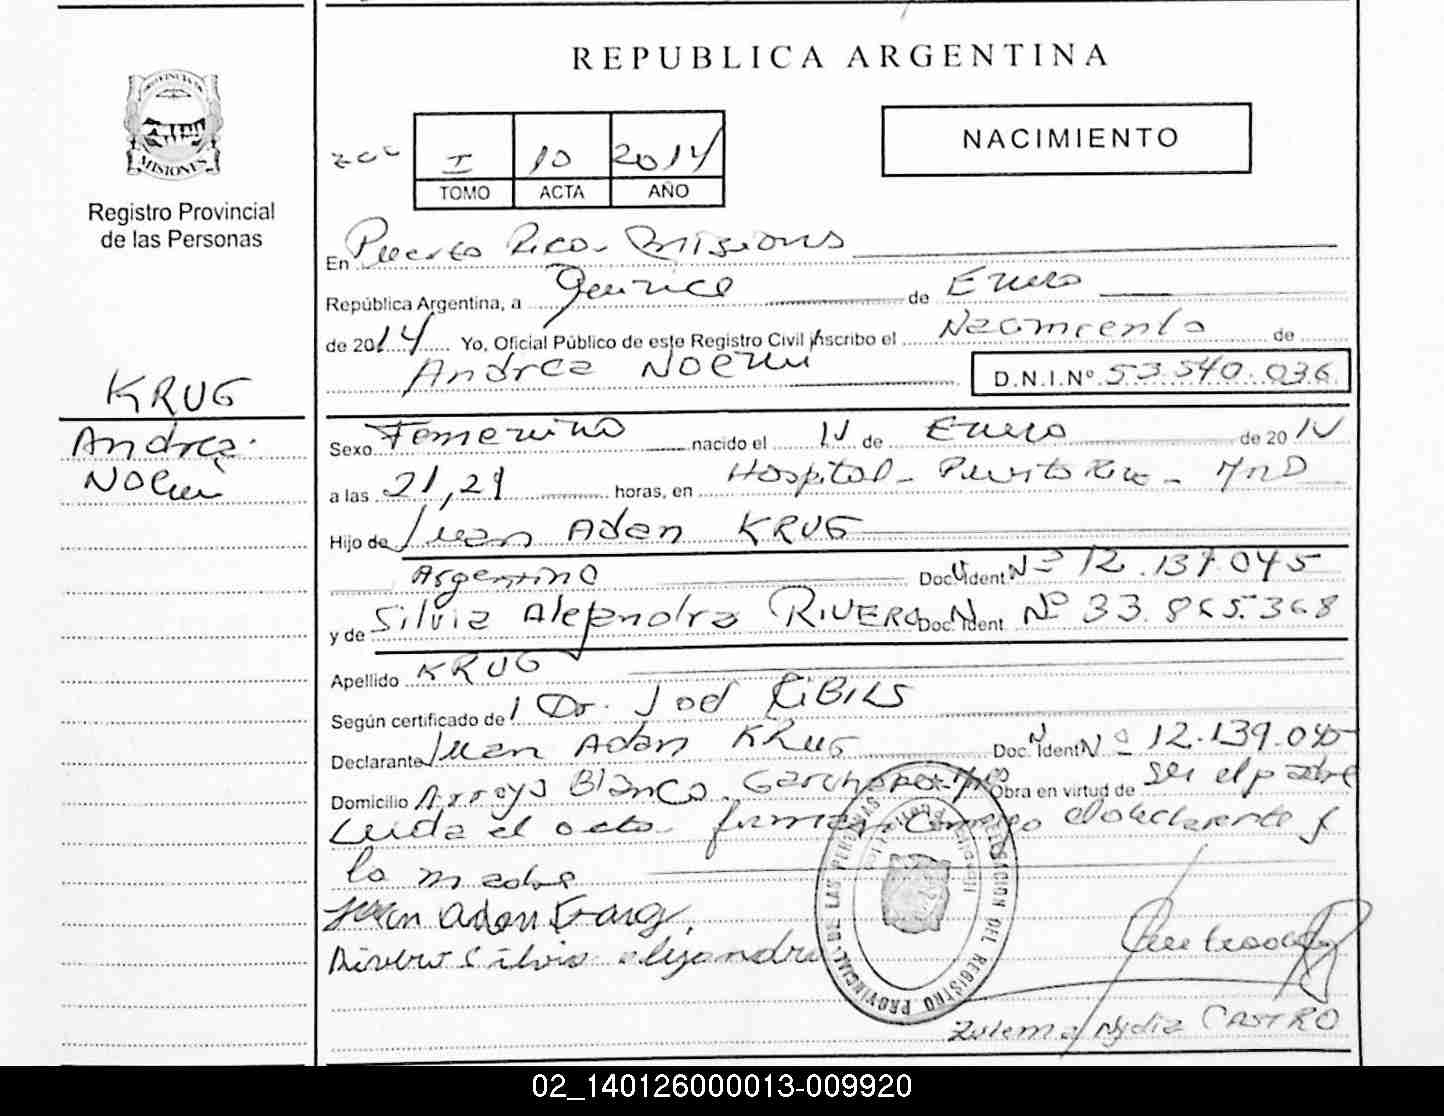 REPUBLICA ARGENTINA
MISIONES
Registro Provincial
de las Personas
NACIMIENTO
I 10 2014
TOMO ACTA AÑO
En Puerto Rico - Misiones
República Argentina, a Quince de Enero
de 2014 Yo, Oficial Público de este Registro Civil inscribo el Nacimiento de
Andrea Noemi D.N.I.Nº 53.540.036
KRUG
Andrea
Noemi
Sexo Femenino nacido el 14 de Enero de 2014
a las 21,29 horas, en Hospital - Puerto Rico -
Hijo de Juan Adan KRUG
Argentino Doc. Ident Nº 12.139.045
y de Silvia Alejandra RIVERO Doc. Ident. Nº 33.865.368
Apellido KRUG
Según certificado de Dr. Joel CIBILS
Declarante Juan Adan KRUG Doc. Ident Nº 12.139.045
Domicilio Arroyo Blanco - Obra en virtud de ser el padre
Leida el acta firman conmigo declarante y
la madre
Juan Adan Krug
Rivero Silvia alejandra
DELEGACION DEL REGISTRO PROVINCIAL DE LAS PERSONAS
Zulema Nydia CASTRO
02_140126000013-009920